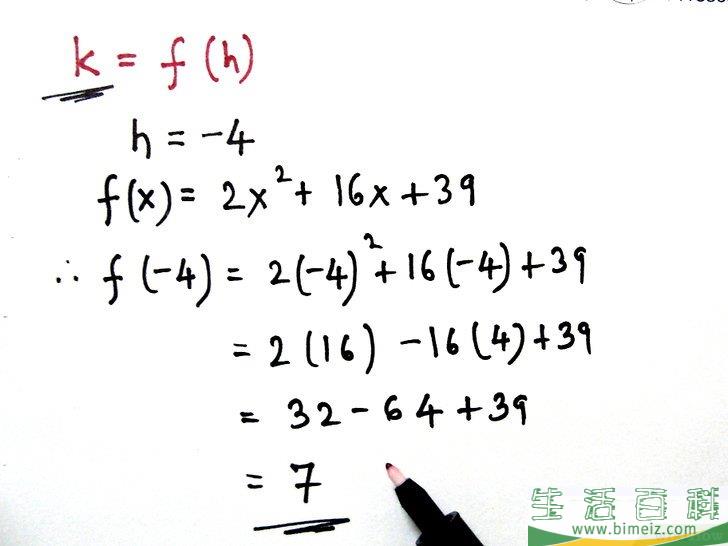 k = f (h)
h = -4
f(x) = 2x² + 16x + 39
∴ f (-4) = 2(-4)² + 16(-4) + 39
= 2(16) - 16(4) + 39
= 32 - 64 + 39
= 7
生活百科
www.bimeiz.com